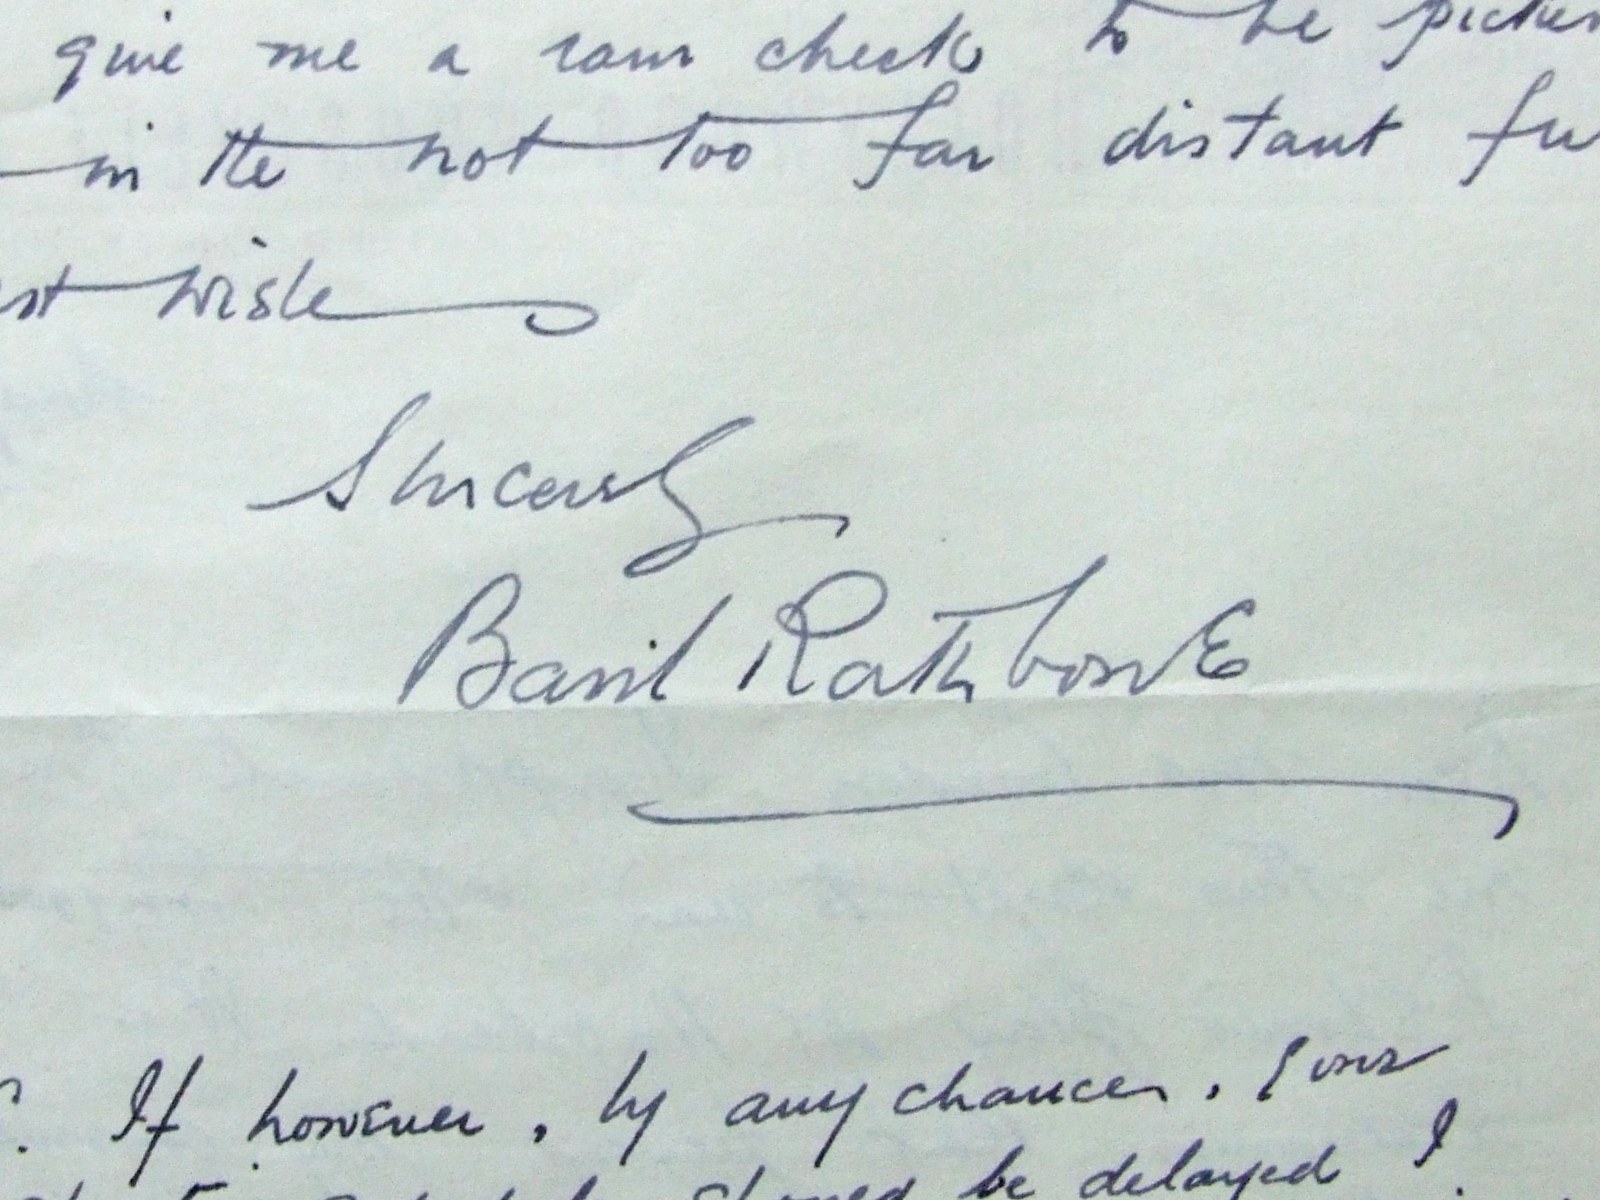 give me a rain check to be picked
in the not too far distant fu
est wishes
Sincerely
Basil Rathbone
S. If however, by any chance, your
should be delayed I